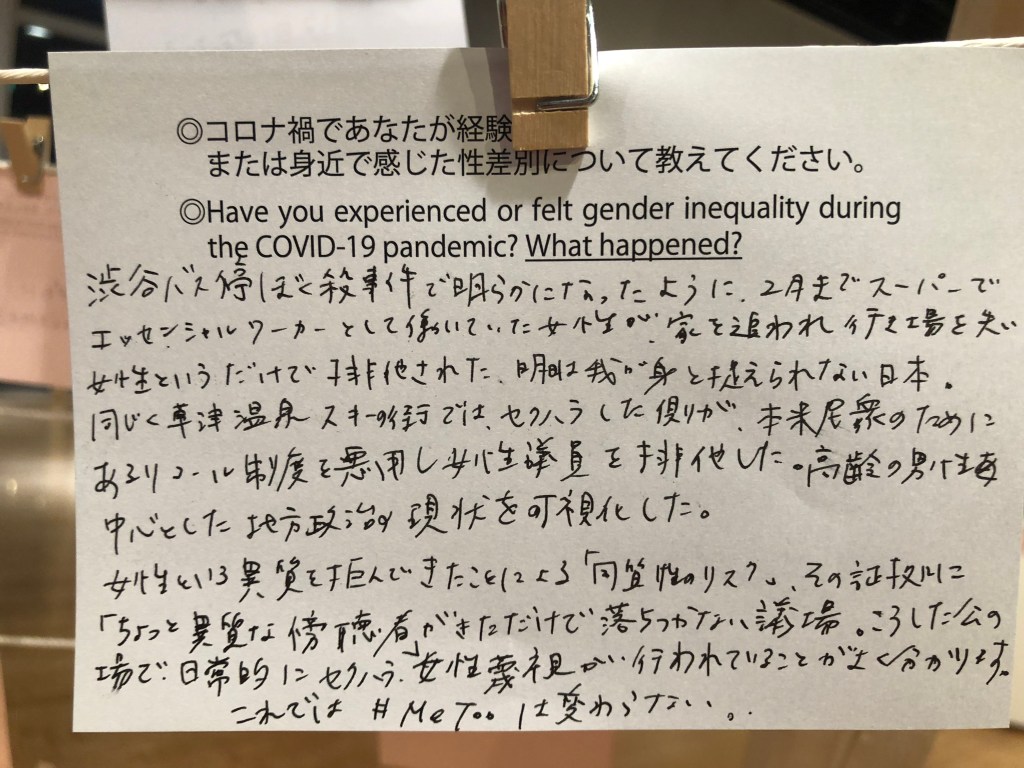 ◎コロナ禍であなたが経験
または身近で感じた性差別について教えてください。
◎Have you experienced or felt gender inequality during
the COVID-19 pandemic? What happened?
渋谷バス停ぼく殺事件で明らかになったように、2月までスーパーで
エッセンシャルワーカーとして働いていた女性が、家を追われ行き場を失い
女性というだけで排他された、明日は我が身と捉えられない日本。
同じく草津温泉スキーの街では、セクハラした側が、本来民衆のために
あるリコール制度を悪用し女性議員を排他した。高齢の男性を
中心とした地方政治の現状を可視化した。
女性という異質を拒んできたことによる「同質性のリスク」、その証拠に
「ちょっと異質な傍聴者」がきただけで落ちつかない議場。こうした公の
場で日常的にセクハラ、女性蔑視が行われていることがよく分かります。
これでは #MeToo は変わらない。